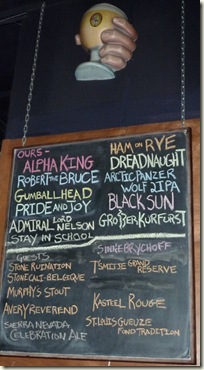 OURS -
ALPHA KING
ROBERT THE BRUCE
GUMBALLHEAD
PRIDE AND JOY
ADMIRAL LORD NELSON
STAY IN SCHOOL
HAM ON RYE
DREADNAUGHT
ARCTIC PANZER
WOLF IIPA
BLACK SUN
GROßER KURFURST
GUESTS
STONE RUINATION
STONE CALI-BELGIQUE
MURPHY'S STOUT
AVERY REVEREND
SIERRA NEVADA
CELEBRATION ALE
SINEBRYCHOFF
T'SMISJE GRAND
RESERVE
KASTEEL ROUGE
ST. LOUIS GUEUZE
FOND TRADITION